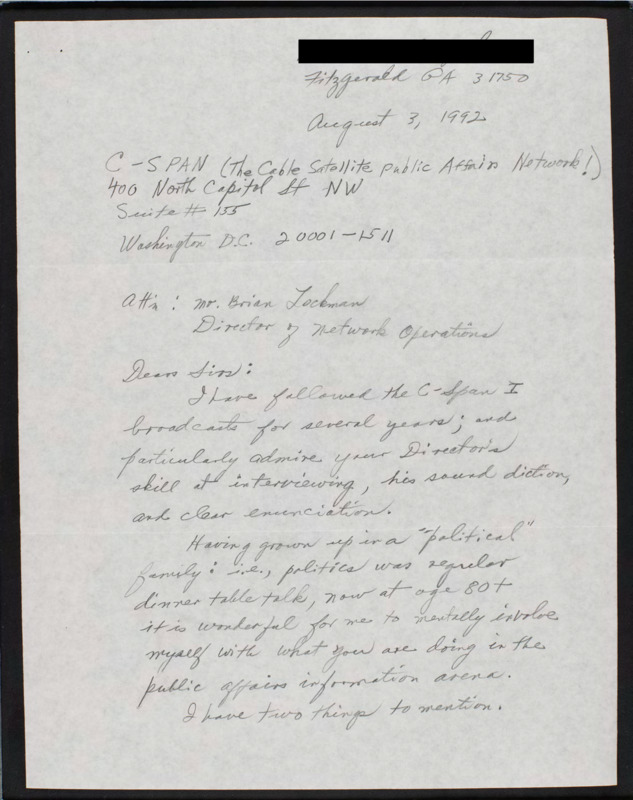 Fitzgerald GA 31750
August 3, 1992
C-SPAN (The Cable Satellite Public Affairs Network!)
400 North Capitol St NW
Suite # 155
Washington D.C. 20001-1511
Att'n: Mr. Brian Lockman
Director of Network Operations
Dear Sirs:
I have followed the C-Span I
broadcasts for several years; and
particularly admire your Director's
skill at interviewing, his sound diction,
and clear enunciation.
Having grown up in a "political"
family: i.e., politics was regular
dinner table talk, now at age 80+
it is wonderful for me to mentally involve
myself with what you are doing in the
public affairs information arena.
I have two things to mention.